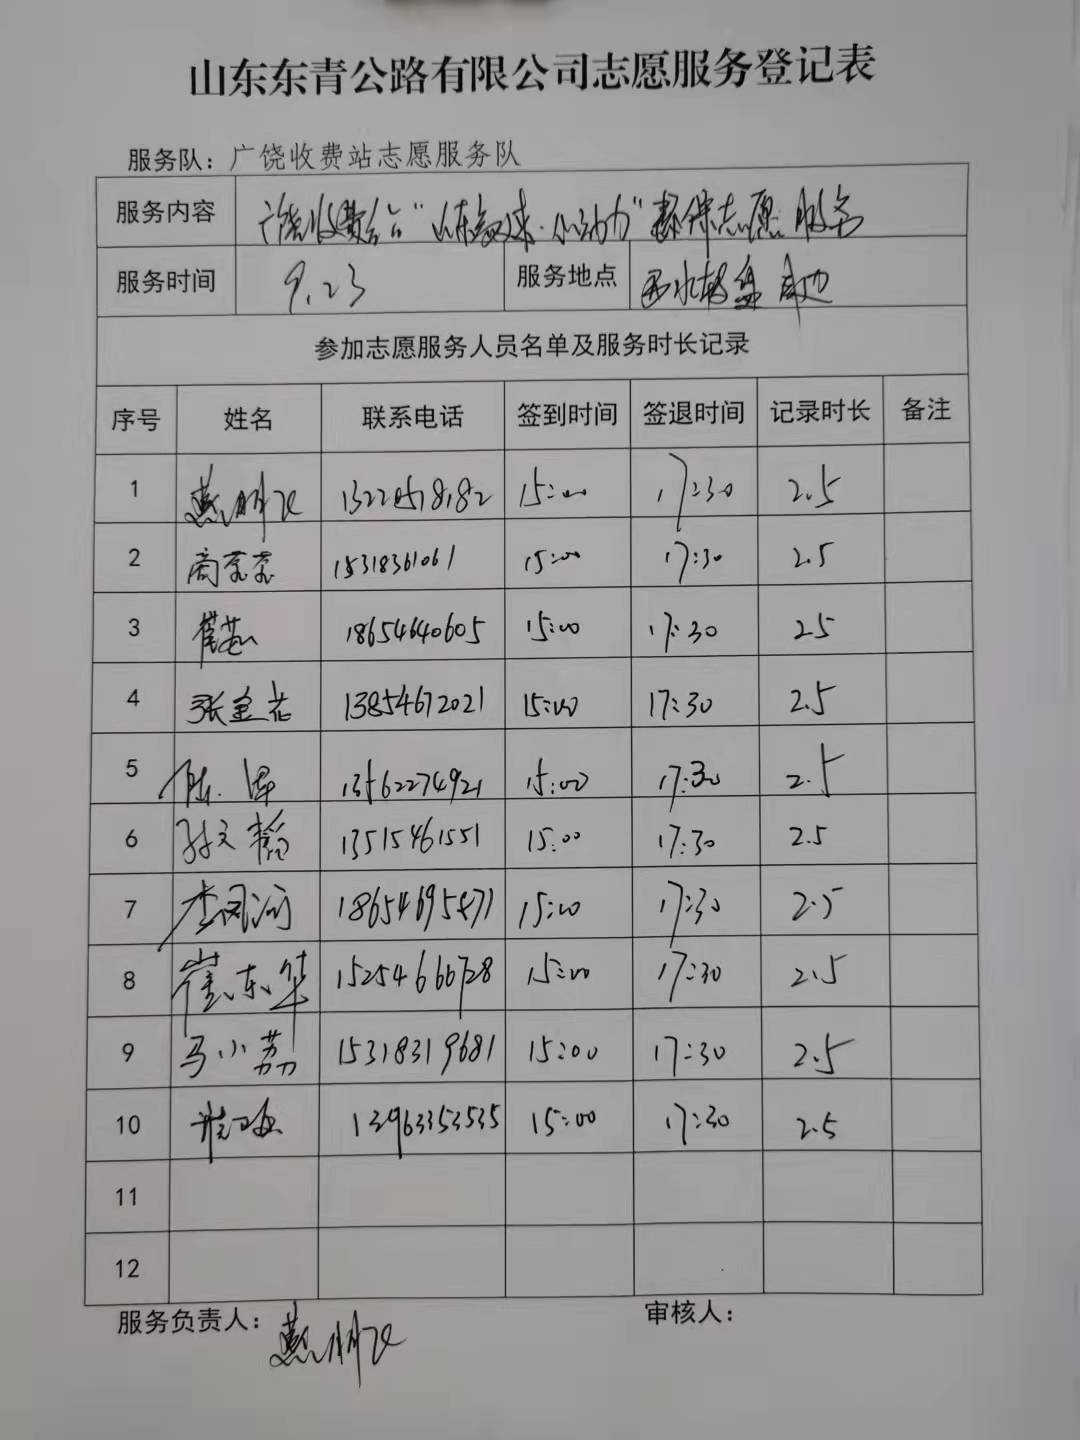 山东东青公路有限公司志愿服务登记表
服务队：广饶收费站志愿服务队
服务内容 广饶收费站“山东高速·小动力”环保志愿服务
服务时间 9.23 服务地点 西水转盘南边
参加志愿服务人员名单及服务时长记录
序号 姓名 联系电话 签到时间 签退时间 记录时长 备注
1 燕明飞 15:00 17:30 2.5
2 商蕊蕊 15318361061 15:00 17:30 2.5
3 崔燕 18654640605 15:00 17:30 2.5
4 张金花 13854672021 15:00 17:30 2.5
5 陈泽 13562274921 15:00 17:30 2.5
6 孙文韬 13515461551 15:00 17:30 2.5
7 李凤河 15:00 17:30 2.5
8 崔东华 15254666728 15:00 17:30 2.5
9 马小荔 15318319681 15:00 17:30 2.5
10 13963353535 15:00 17:30 2.5
11
12
服务负责人：燕明飞 审核人：